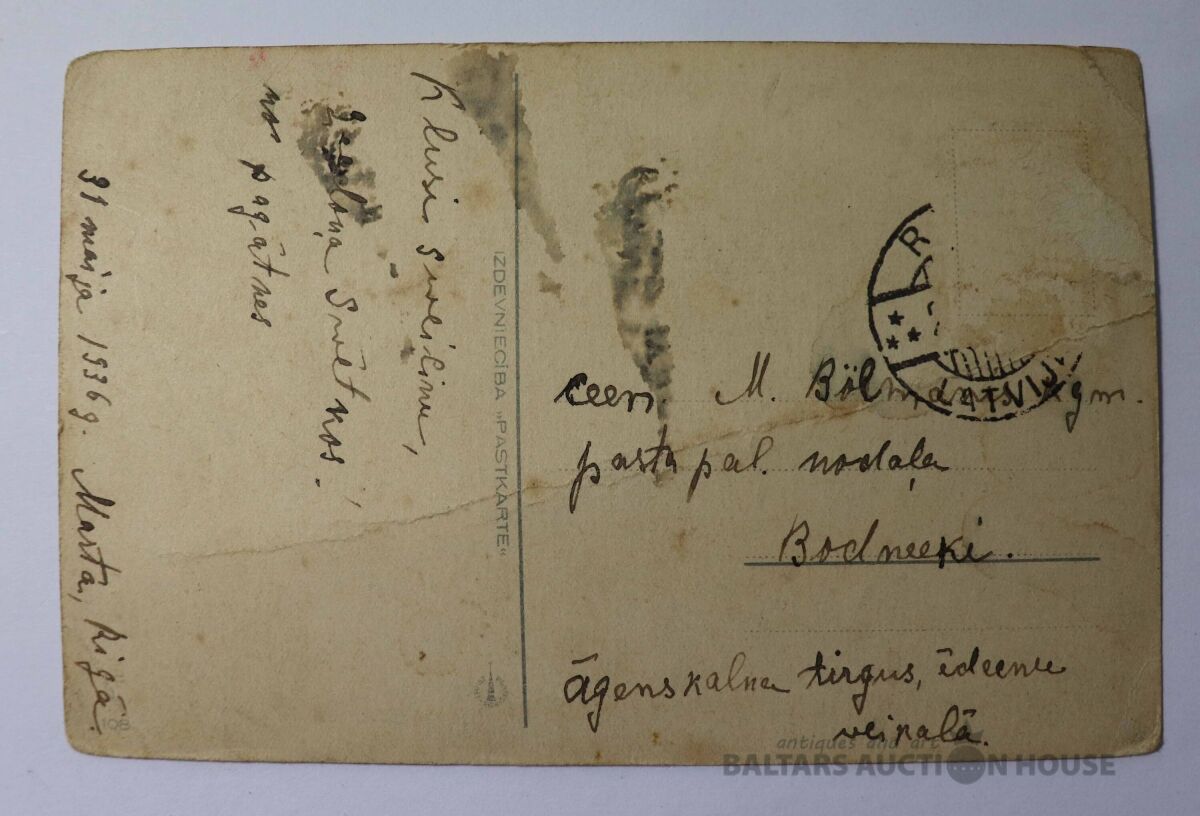 Klusi sveicinu,
Svētkos.
no pagātnes
31 maija 1936 g. Marta, Rīgā.
IZDEVNIECĪBA „PASTKARTE“
R
LATVIJ
ceen. M. kgm.
pasta pal. nodaļa
Bodneeki.
Āgenskalna tirgus, ēdeenu
veikalā.
108
antiques and art
BALTARS AUCTION HOUSE